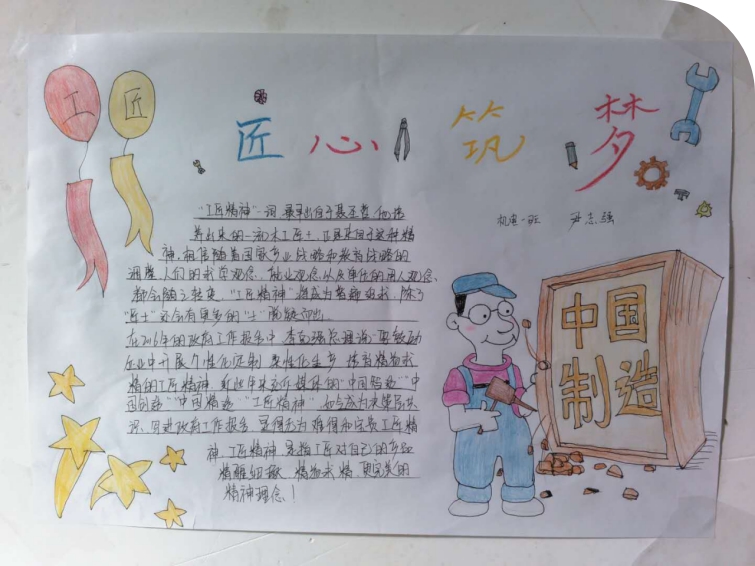 工 匠
匠 心 筑 梦
机电一班 尹志强
"工匠精神"一词,最早出自于聂圣哲,他培
养出来的一流木工匠士,正是来自于这种精
神,相信随着国家产业战略和教育战略的
调整,人们的求学观念、就业观念以及单位的用人观念
都会随之转变,"工匠精神"将成为普遍追求,除了
"匠士"还会有更多的"士"脱颖而出。
在2016年的政府工作报告中,李克强总理说:要鼓励
企业中开展个性化定制、柔性化生产,培育精益求
精的工匠精神,
国创造""中国精造""工匠精神",如今成为决策层共
识,写进政府工作报告,显得尤为难得和宝贵,工匠精
神,工匠精神,是指工匠对自己的产品
精雕细琢,精益求精、更完美的
精神理念!
中国
制造